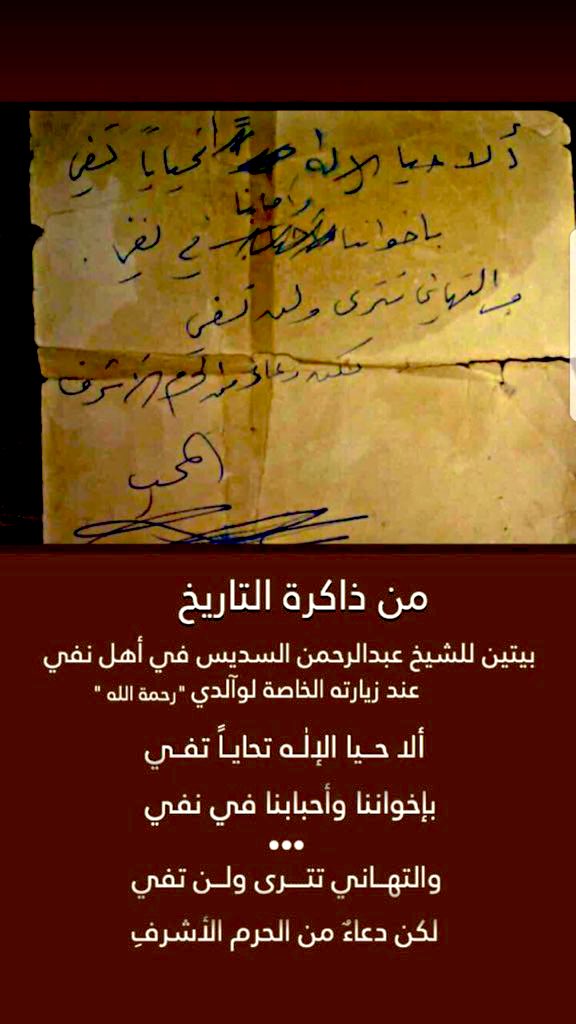 ألا حيا الإله تحاياً تفي
وأحبابنا
بإخواننا في نفي
والتهاني تترى ولن تفي
لكن دعاء من الحرم الأشرف
المحب
من ذاكرة التاريخ
بيتين للشيخ عبدالرحمن السديس في أهل نفي
عند زيارته الخاصة لوآلدي "رحمة الله"
ألا حــيا الإلٰـه تحايـاً تفـي
بإخواننا وأحبابنا في نفي
•••
والتهـاني تتـــرى ولــن تفي
لكن دعاءٌ من الحرم الأشرفِ